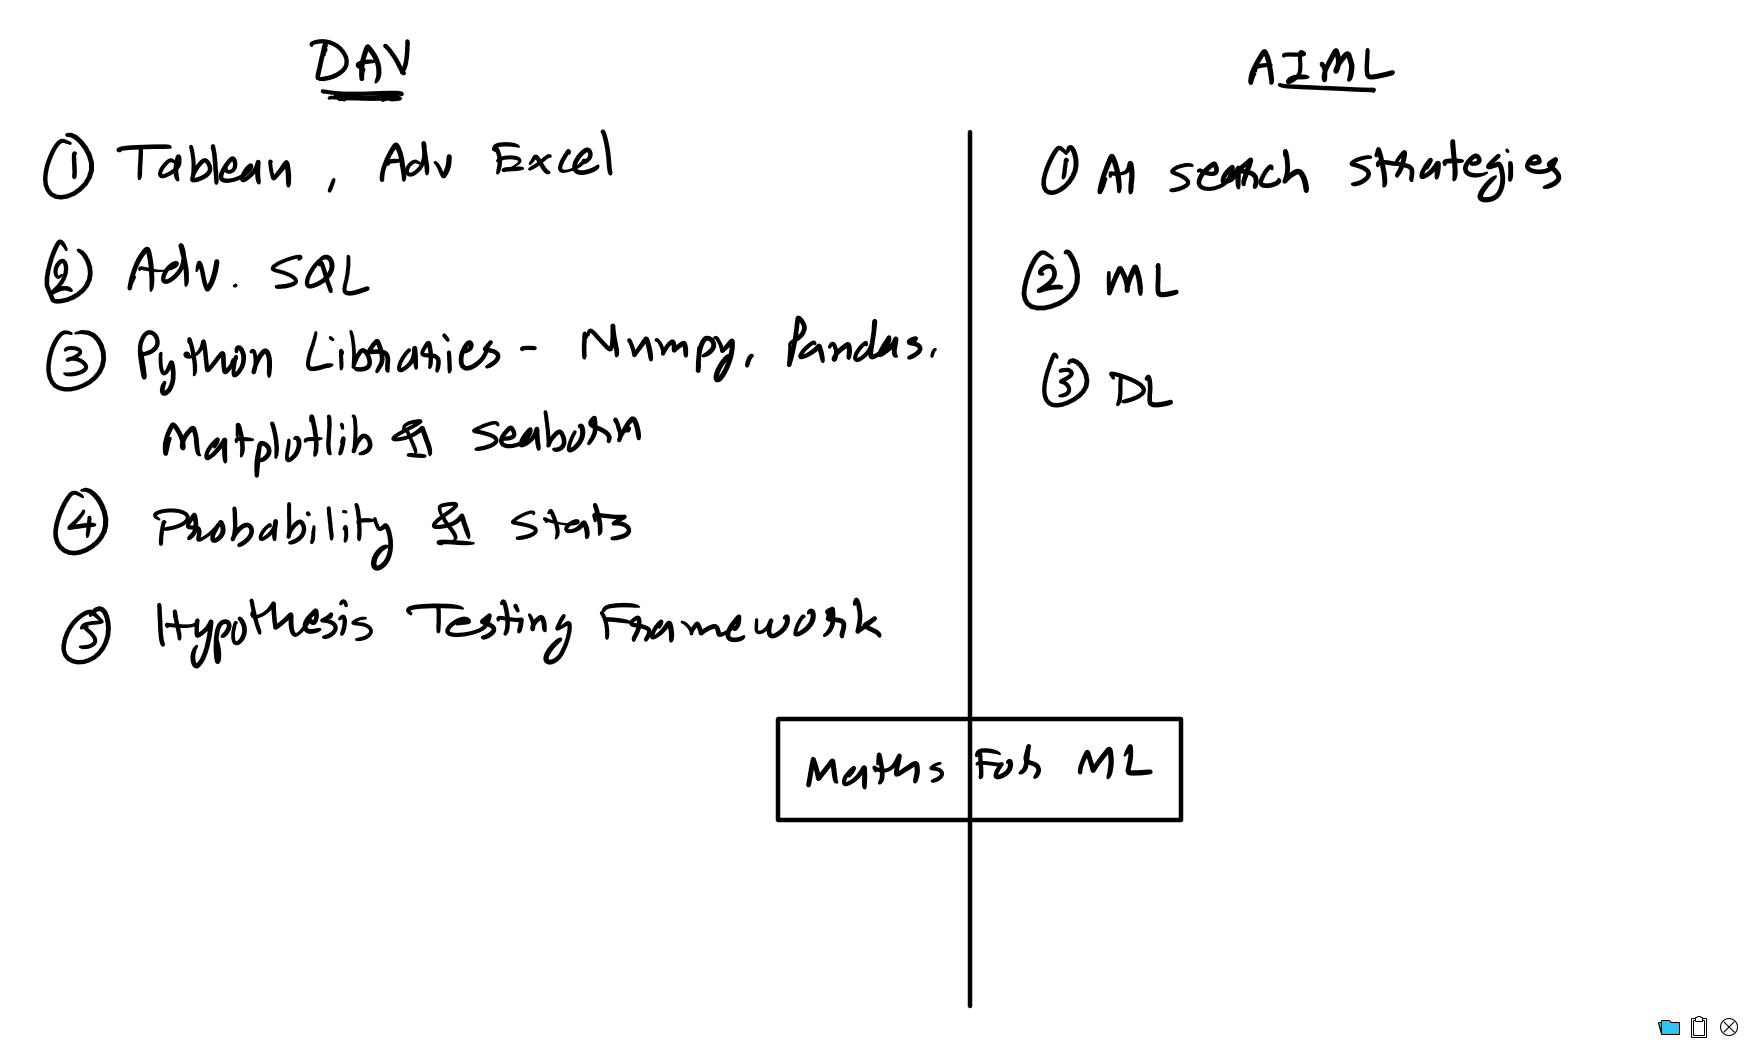 DAV
① Tableau, Adv Excel
② Adv. SQL
③ Python Libraries - Numpy, Pandas,
Matplotlib & Seaborn
④ Probability & Stats
⑤ Hypothesis Testing Framework
AIML
① AI search strategies
② ML
③ DL
Maths For ML